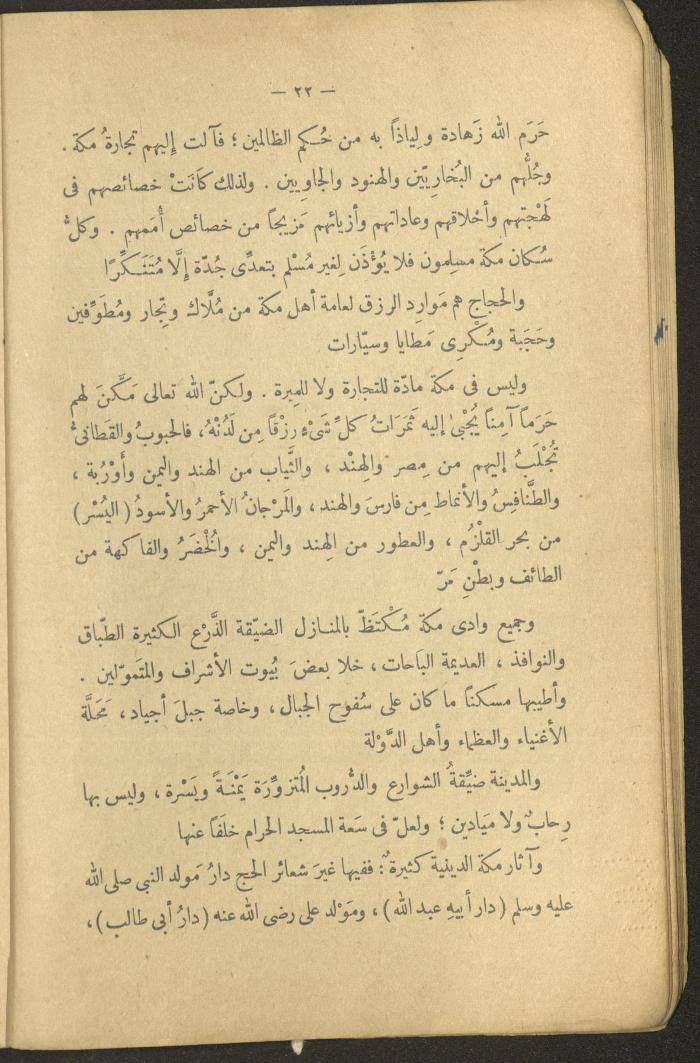 — ٢٢ —
حَرَم الله زَهادة ولِياذاً به من حُكم الظالمين ؛ فآلت إِليهم تجارةُ مكة .
وجُلُّهم من البُخاريّين والهنود والجاويين . ولذلك كَانَتْ خصائصهم فى
لَهْجتهم وأخلاقهم وعاداتهم وأزيائهم مَزيجاً من خصائص أُمَمهم . وكلُّ
سُكان مكة مسلمون فلا يُؤْذَن لِغير مُسْلم بتعدِّى جُدّة إِلَّا مُتَنَكِّرًا
والحجاج هم مَوارِد الرزق لعامة أهل مكة من مُلَّاك وتِجار ومُطَوِّفين
وحَجَبة ومُكْرِى مَطايا وسيّارات
وليس فى مكة مادّة للتجارة ولا للمِيرة . ولكنّ الله تعالى مَكَّنَ لهم
حَرَماً آمِناً يُجْبىٰ إليه ثَمَرَاتُ كلِّ شَىْءٍ رِزْقًا مِن لَدُنْهُ، فالحبوبُ والقَطانىُّ
تُجْلَبُ إليهم من مِصر والهِنْد ، والثِّياب من الهند واليمن وأَوْرُبة ،
والطَّنافِسُ والأنماط مِن فارسَ والهند ، والمَرْجانُ الأحمرُ والأسودُ ( اليُسْر )
من بحر القلْزُم ، والعطور من الهِند واليمن ، والْخُضَرُ والفاكهة من
الطائف وبطْنِ مَرّ
وجميع وادى مكة مُكْتَظّ بالمنازل الضيّقة الذَّرْع الكثيرة الطّباق
والنوافذ ، العديمة البَاحات ، خلا بعضَ بُيوت الأشراف والمتَموّلين .
وأطيبها مسكناً ما كان على سُفوح الجبال ، وخاصة جبلَ أجياد ، مَحَلَّة
الأغنياء والعظماء وأهل الدَّوْلة
والمدينة ضيِّقةُ الشوارع والدُّروب المُتزوِّرَة يَمْنَةً ويَسْرة ، وليس بها
رِحابٌ ولا مَيَادين ؛ ولعلّ فى سَعة المسجد الحرام خلَفاً عنها
وآثار مكة الدينية كثيرةٌ : ففيها غيرَ شعائر الحج دارُ مَولد النبي صلى الله
عليه وسلم ( دار أبيهِ عبد الله ) ، ومَوْلد على رضى الله عنه ( دارُ أبى طالب ) ،